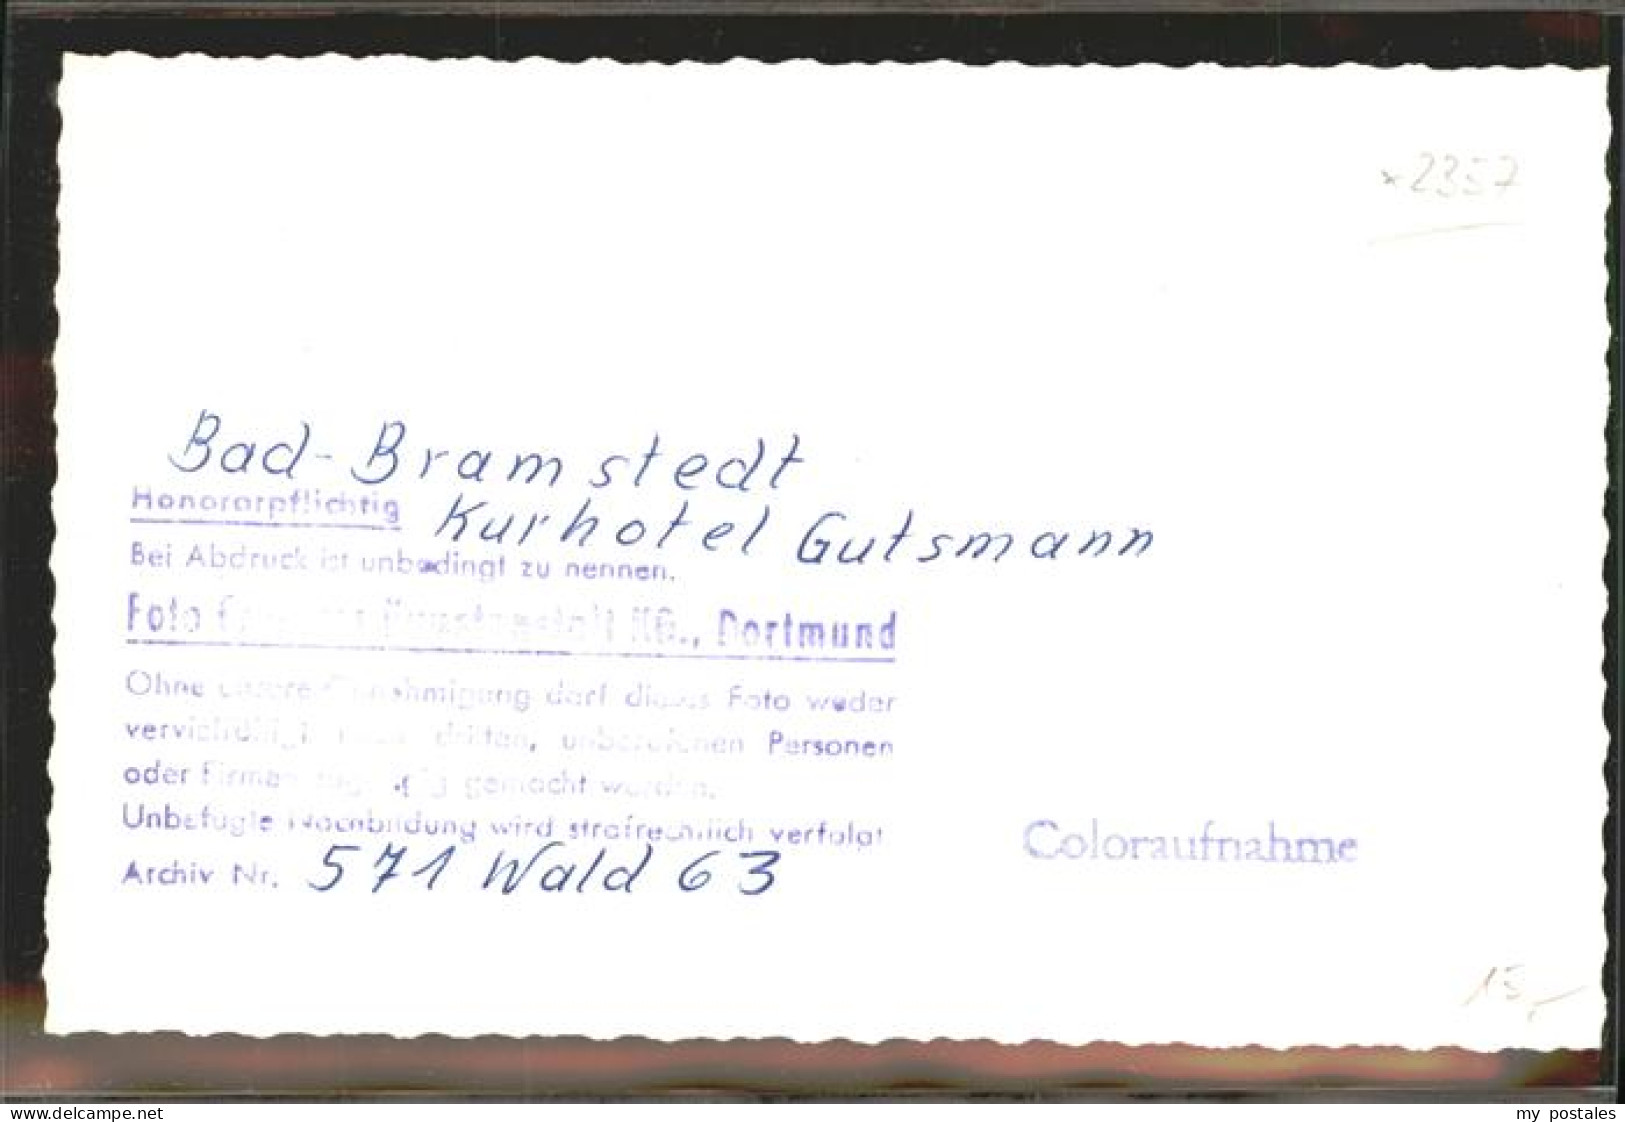 *2357
Bad-Bramstedt
Honorarpflichtig
Kurhotel Gutsmann
Bei Abdruck ist unbedingt zu nennen.
Foto Kunstanstalt KG., Dortmund
Ohne unsere Genehmigung darf dieses Foto weder
vervielfältigt noch dritten, unberufenen Personen
oder Firmen zugängig gemacht werden.
Unbefugte Nachbildung wird strafrechtlich verfolgt
Archiv Nr. 571 Wald 63
Coloraufnahme
15,-
www.delcampe.net
my postales